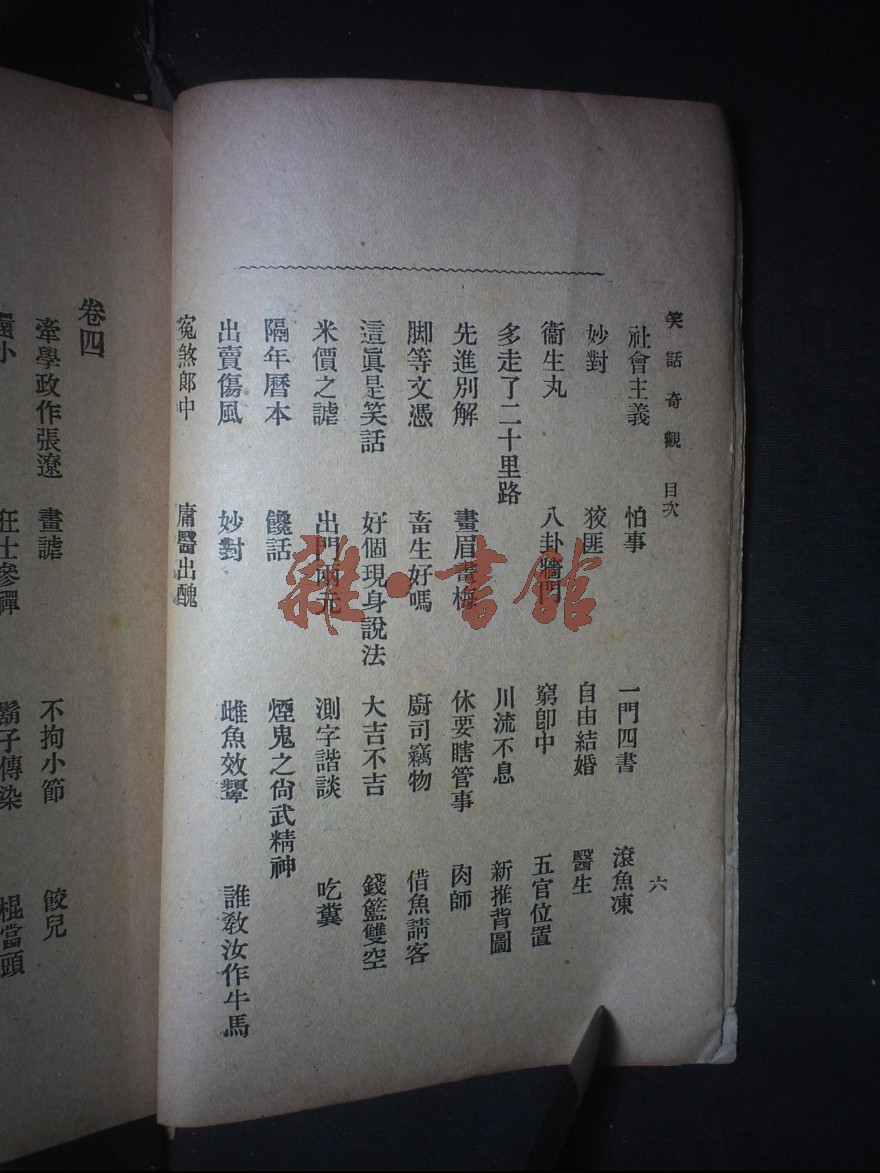 笑話奇觀 目次 六
社會主義 怕事 一門四書 滾魚凍
妙對 狡匪 自由結婚 醫生
衞生丸 八卦牆門 窮卽中 五官位置
多走了二十里路 川流不息 新推背圖
先進別解 畫眉畫梅 休要瞎管事 肉師
脚等文憑 畜生好嗎 廚司竊物 借魚請客
這眞是笑話 好個現身說法 大吉不吉 錢籃雙空
米價之謔 出門兩元 測字諧談 吃糞
隔年曆本 饞話 煙鬼之尙武精神
出賣傷風 妙對 雌魚效顰 誰敎汝作牛馬
寃煞郎中 庸醫出醜
卷四
牽學政作張遼 畫謔 不拘小節 餃兒
小 狂士參禪 鬍子傳染 棍當頭
雜·書館